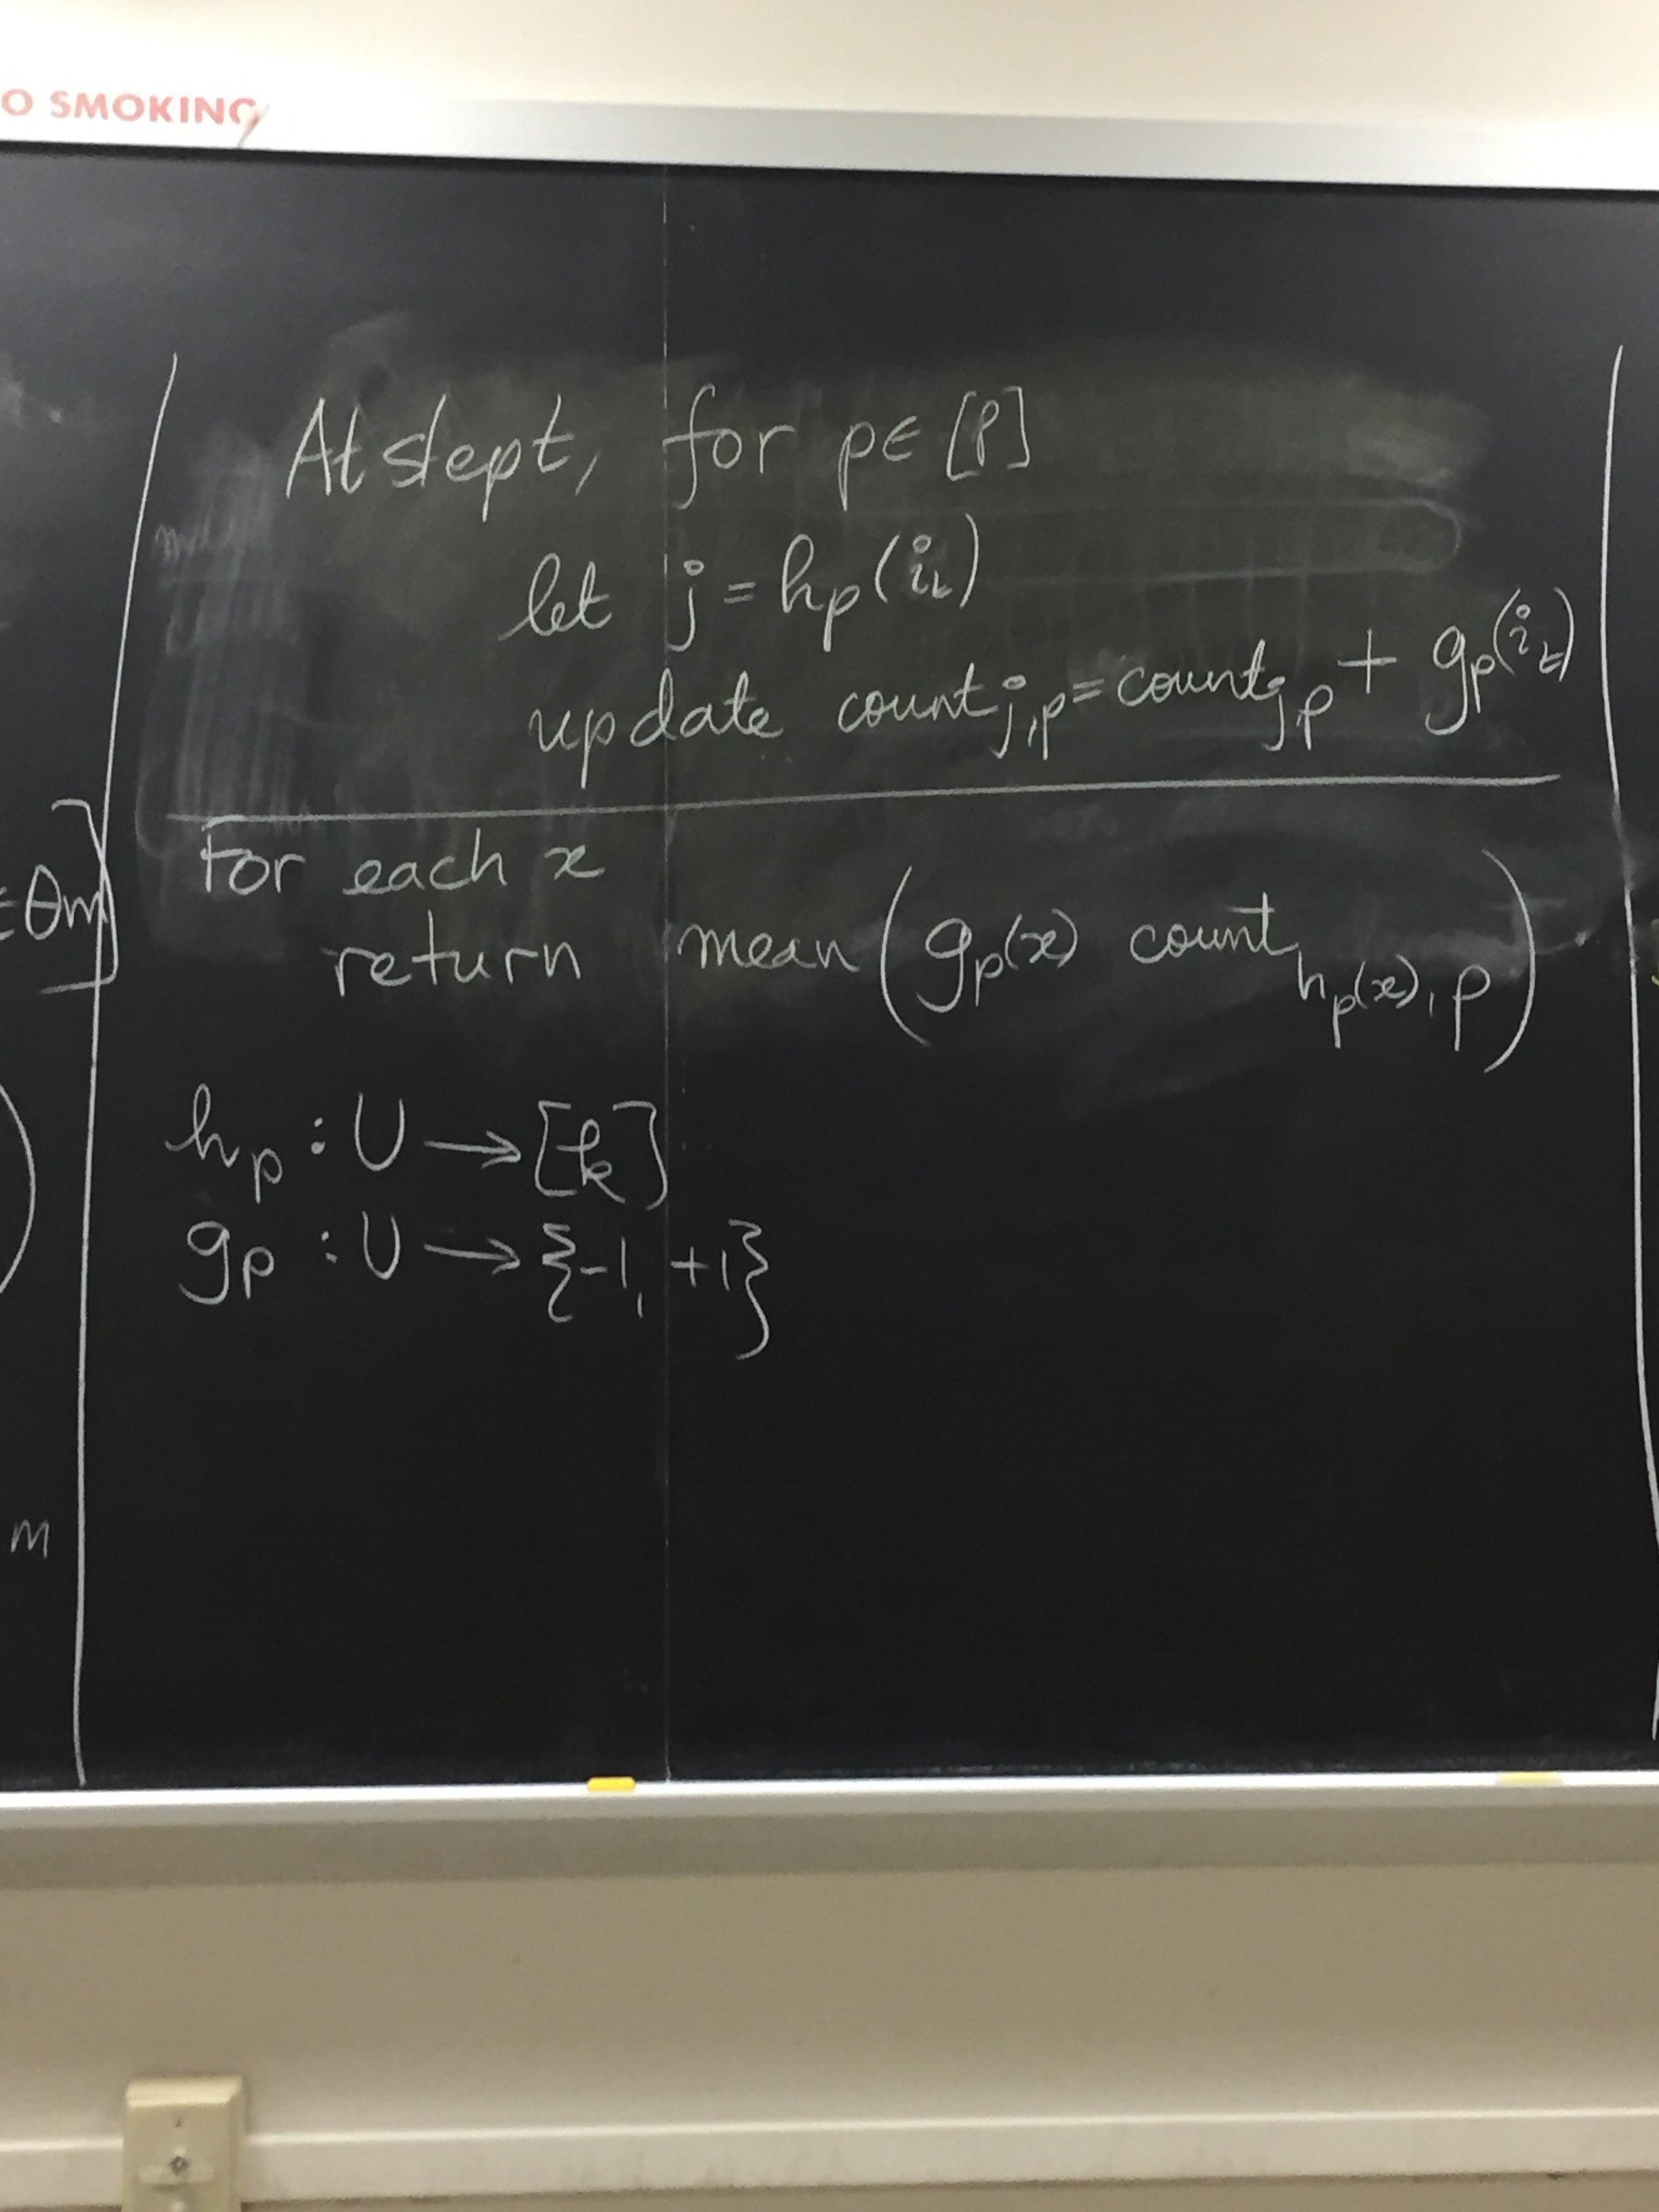 O SMOKING
At step t, for p ∈ [P]
let j = h_p(i_t)
update count_{j,p} = count_{j,p} + g_p(i_t)
For each x
return mean(g_p(x) count_{h_p(x), p})
h_p : U → [k]
g_p : U → {-1, +1}
θm
m